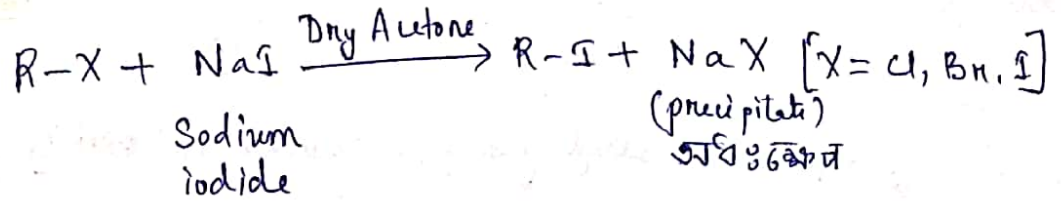 R-X + NaI Dry Acetone → R-I + NaX [X = Cl, Br, I]
Sodium iodide
(precipitate)
অধঃক্ষেপ